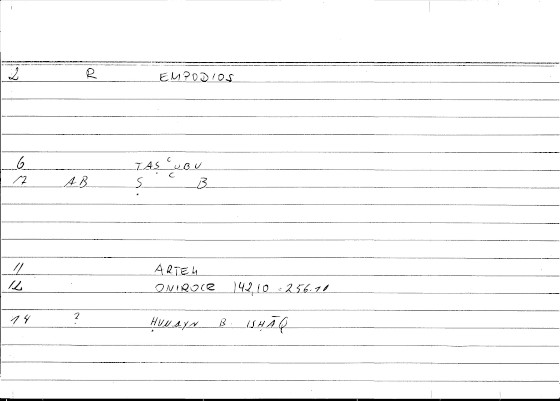 2 R EMPODIOS
6 TAṢ ͨ UBU
17 AB Ṣ ͨ B
11 ARTEM
12 ONIROCR 142,10 - 256.18
14 ? ḤUNAYN B. ISḤĀQ